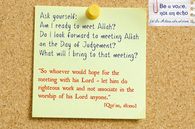 Ask yourself:
Am I ready to meet Allah?
Do I look forward to meeting Allah
on the Day of Judgement?
What will I bring to that meeting?
"So whoever would hope for the
meeting with his Lord - let him do
righteous work and not associate in the
worship of his Lord anyone."
[Qur'an,
Be a voice,
not an echo